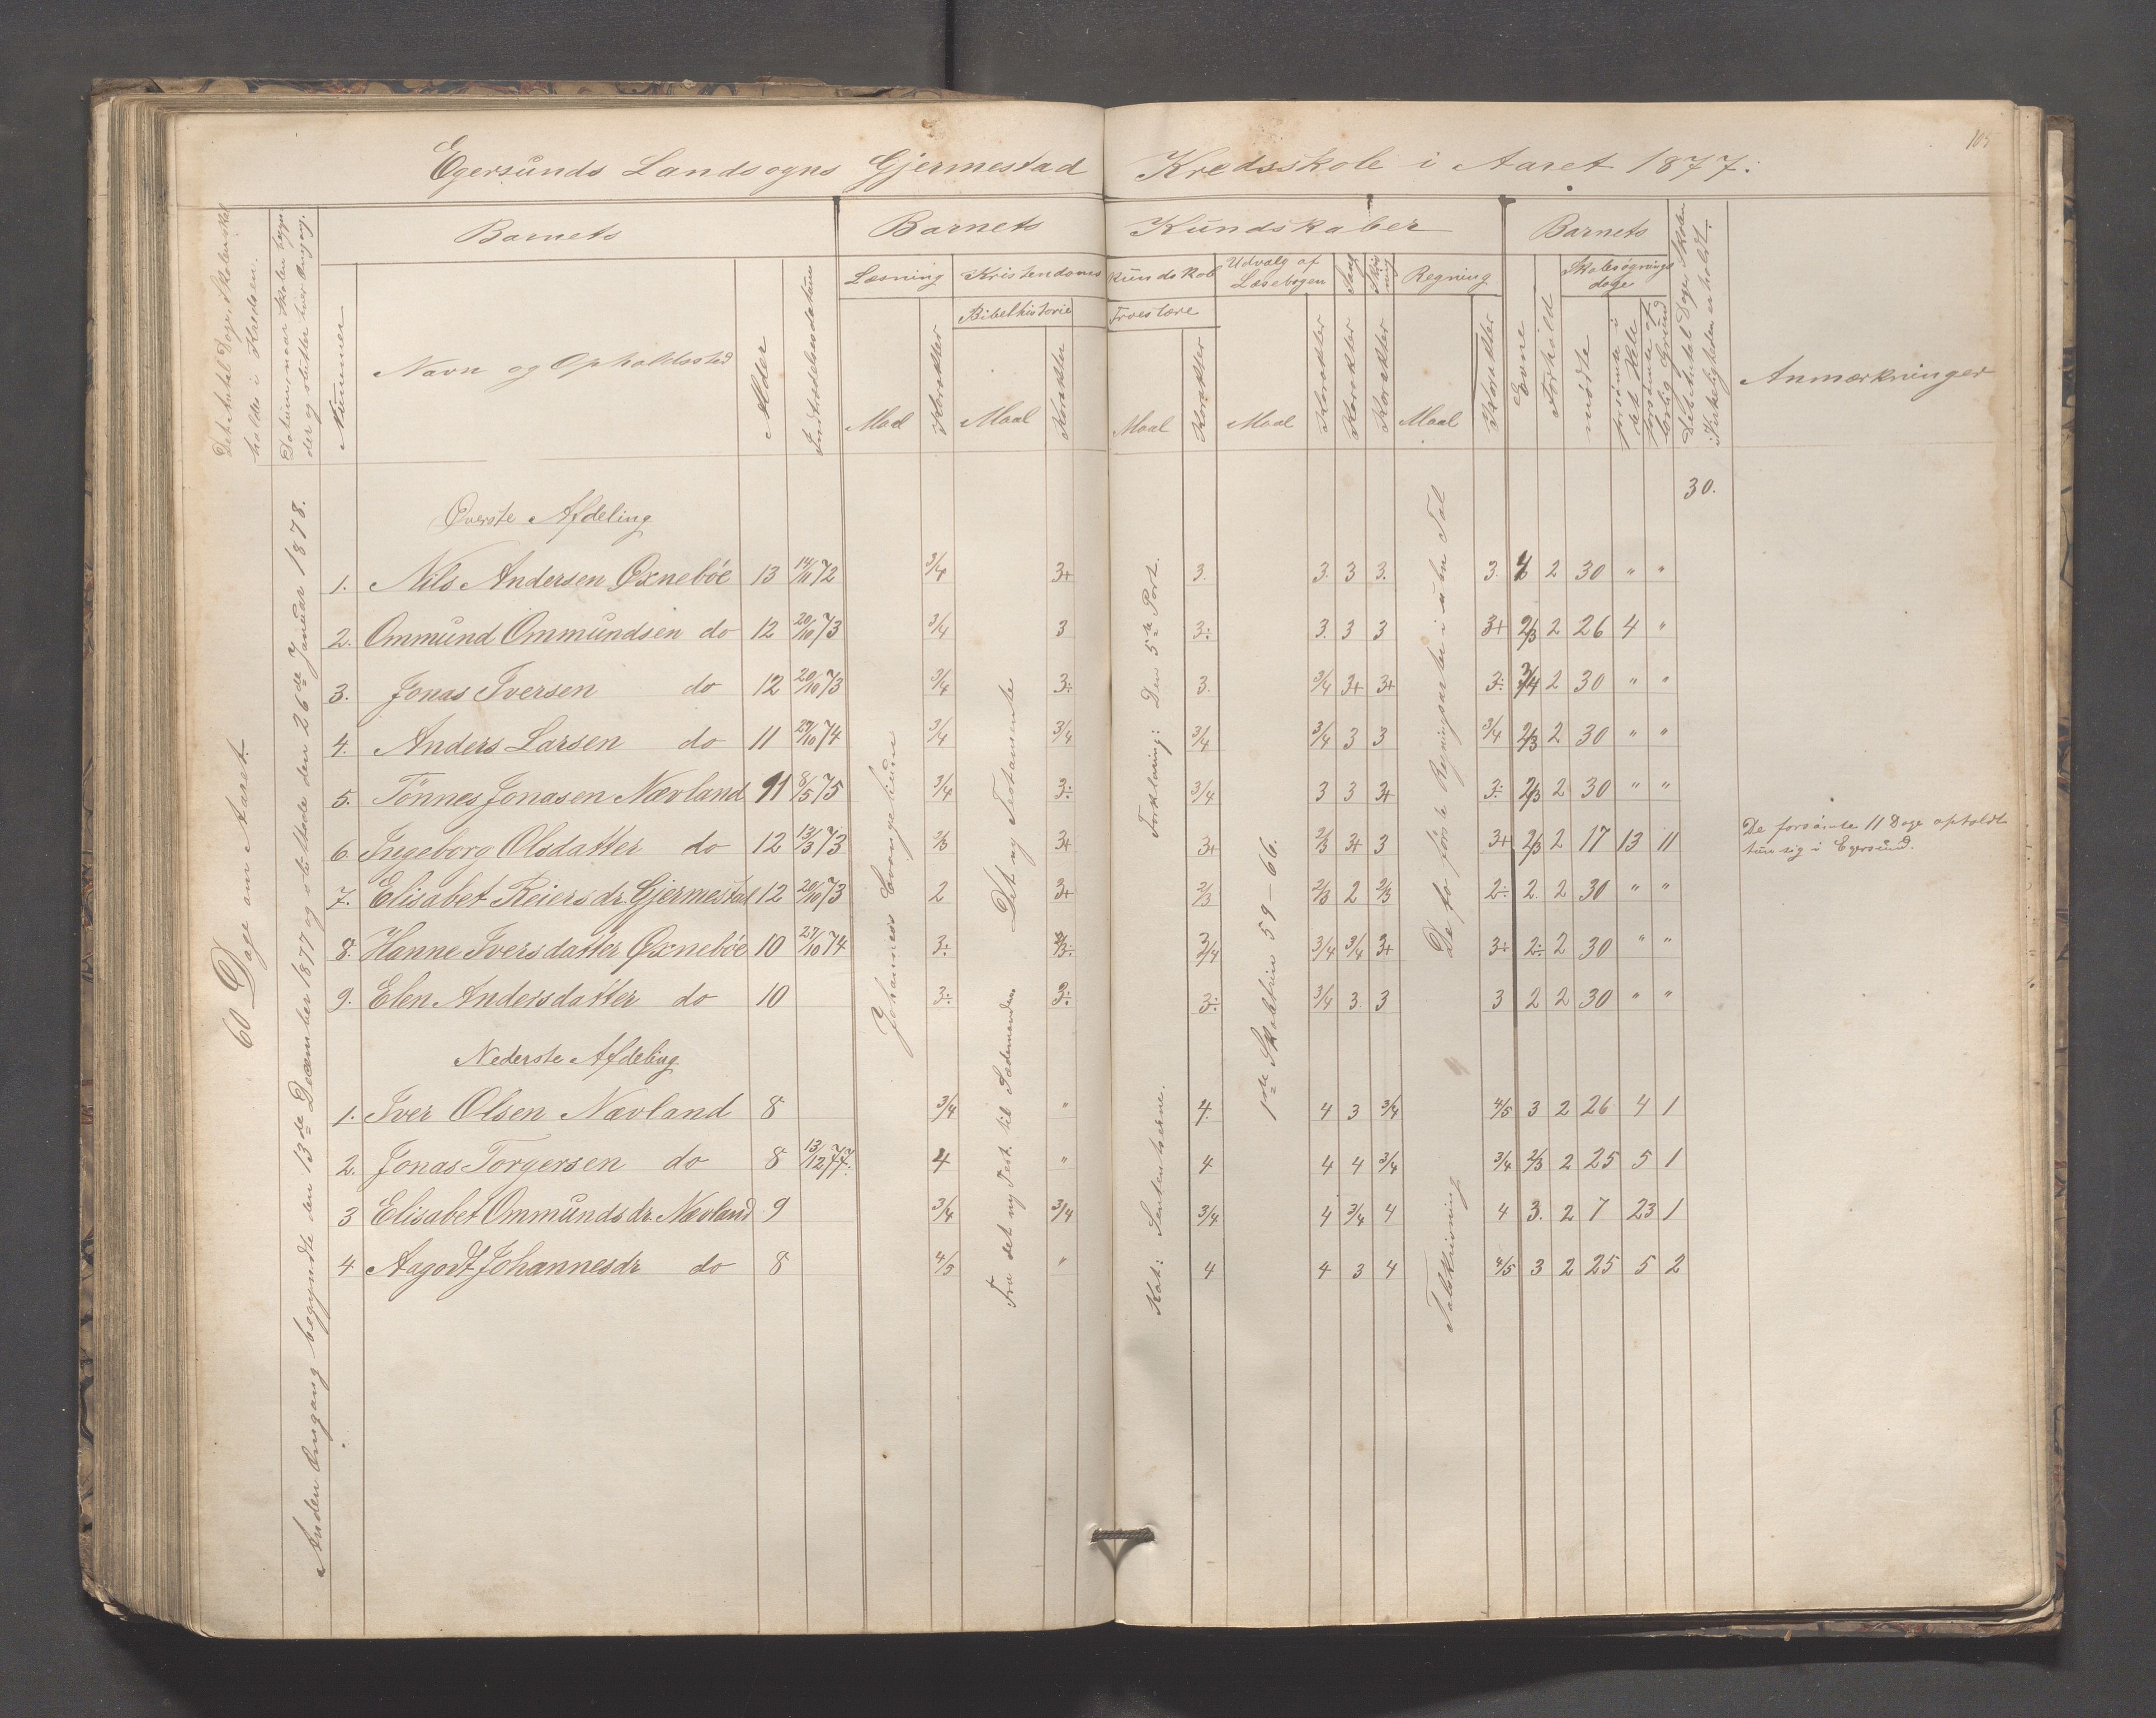 105
Egersunds Landsogns Gjermestad Kredsskole i Aaret 1877.
Det Antal Dage, Skolen skal holdes i Kredsen.
Datum, naar Skolen begynder og slutter hver Omgang.
Barnets
Barnets Kundskaber
Barnets
Det Antal Dage, Skolen i Virkeligheden er holdt.
Anmærkninger
Nummer
Navn og Opholdssted
Alder
Indtrædelsesdatum
Læsning
Kristendoms Kundskab
Udvalg af Læsebogen
Sang
Skrivning
Regning
Evne
Forhold
Skolesøgningsdage
Bibelhistorie
Troeslære
mødte
forsømte i det Hele
forsømte af lovlig Grund
Maal Karakter Maal Karakter Maal Karakter Maal Karakter Karakter Karakter Maal Karakter
60 Dage om Aaret.
Anden Omgang begyndte den 13de December 1877 og sluttede den 26de Januar 1878.
Johannes Evangelium
Det ny Testamente
Fra det ny Test. til Sædemanden
Forklaring: Den 5te Part.
Kat: Sententserne.
1ste Skoletrin 59-66.
De fo første Regningsarter i ubn Tal
Talskrivning
30.
Øverste Afdeling
1. Nils Andersen Øxnebøe 13 14/11 72 3/4 3+ 3. 3. 3 3. 3. 4 2 30 " "
2. Ommund Ommundsen do 12 20/10 73 3/4 3 3÷ 3. 3 3 3+ 2/3 2 26 4 "
3. Jonas Iversen do 12 20/10 73 3/4 3÷ 3. 3/4 3+ 3+ 3÷ 3/4 2 30 " "
4. Anders Larsen do 11 29/10 74 3/4 3/4 3/4 3/4 3 3 3/4 2/3 2 30 " "
5. Tønnes Jonasen Nævland 11 8/5 75 3/4 3÷ 3/4 3 3 3+ 3÷ 2/3 2 30 " "
6. Ingeborg Olsdatter do 12 13/3 73 2/3 3+ 3+ 2/3 3+ 3 3+ 2/3 2 17 13 11 De forsømte 11 Dage opholdt
hun sig i Egersund.
7. Elisabet Reiersdr. Gjermestad 12 20/10 73 2 3+ 2/3 2/3 2 2/3 2÷ 2. 2 30 " "
8. Hanne Iversdatter Øxnebøe 10 29/10 74 3÷ 3÷ 3/4 3/4 3/4 3+ 3÷ 2÷ 2 30 " "
9. Elen Andersdatter do 10 3÷ 3÷ 3÷ 3/4 3. 3 3 2 2 30 " "
Nederste Afdeling
1. Iver Olsen Nævland 8 3/4 " 4. 4 3 3/4 4/5 3 2 26 4 1
2. Jonas Torgersen do 8 13/12 77. 4 " 4 4 4 3/4 3/4 2/3 2 25 5 1
3 Elisabet Ommundsdr. Nævland 9 3/4 3/4 3/4 4 3/4 4 4 3. 2 7 23 1
4 Aagodt Johannesdr do 8 4/5 " 4 4 3 4 4/5 3 2 25 5 2